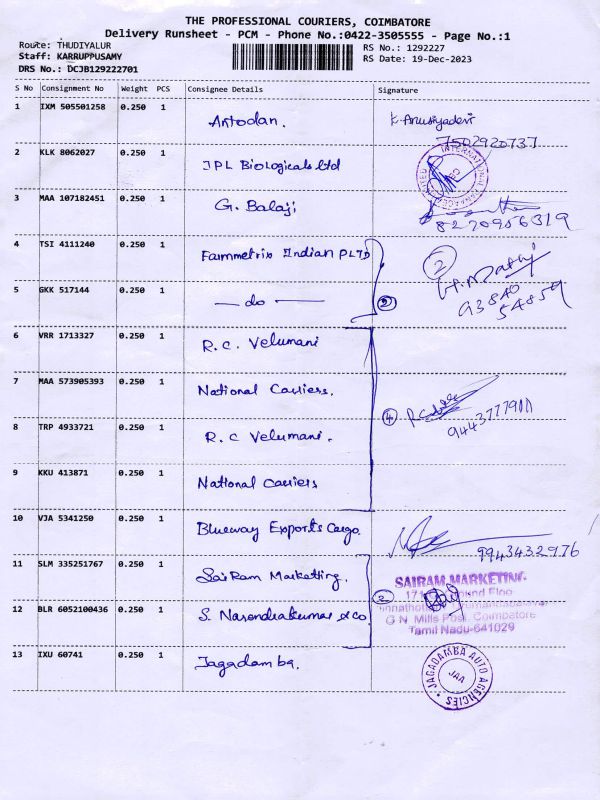 THE PROFESSIONAL COURIERS, COIMBATORE
Delivery Runsheet - PCM - Phone No.:0422-3505555 - Page No.:1
Route: THUDIYALUR
RS No.: 1292227
Staff: KARRUPPUSAMY
RS Date: 19-Dec-2023
DRS No.: DCJB129222701
S No Consignment No Weight PCS Consignee Details Signature
1 IXM 505501258 0.250 1 Artodan. K. Anusiyadevi
7502920737
2 KLK 8062027 0.250 1 JPL Biologicals Ltd
INTERNATIONAL
3 MAA 107182451 0.250 1 G. Balaji
8220956319
4 TSI 4111240 0.250 1 Fammetrix Indian PLTD 2
5 GKK 517144 0.250 1 — do — 2
93840
54859
6 VRR 1713327 0.250 1 R. C. Velumani
7 MAA 573905393 0.250 1 National Carriers. 4
8 TRP 4933721 0.250 1 R. C Velumani.
9 KKU 413871 0.250 1 National Carriers
10 VJA 5341250 0.250 1 Blueway Exports Cargo.
9943432976
11 SLM 335251767 0.250 1 SaiRam Marketting.
SAIRAM MARKETING
12 BLR 6052100436 0.250 1 S. Narendrakumar & co 2
G N Mills Post, Coimbatore
Tamil Nadu-641029
13 IXU 60741 0.250 1 Jagadamba.
JAGADAMBA AUTO AGENCIES
JAA